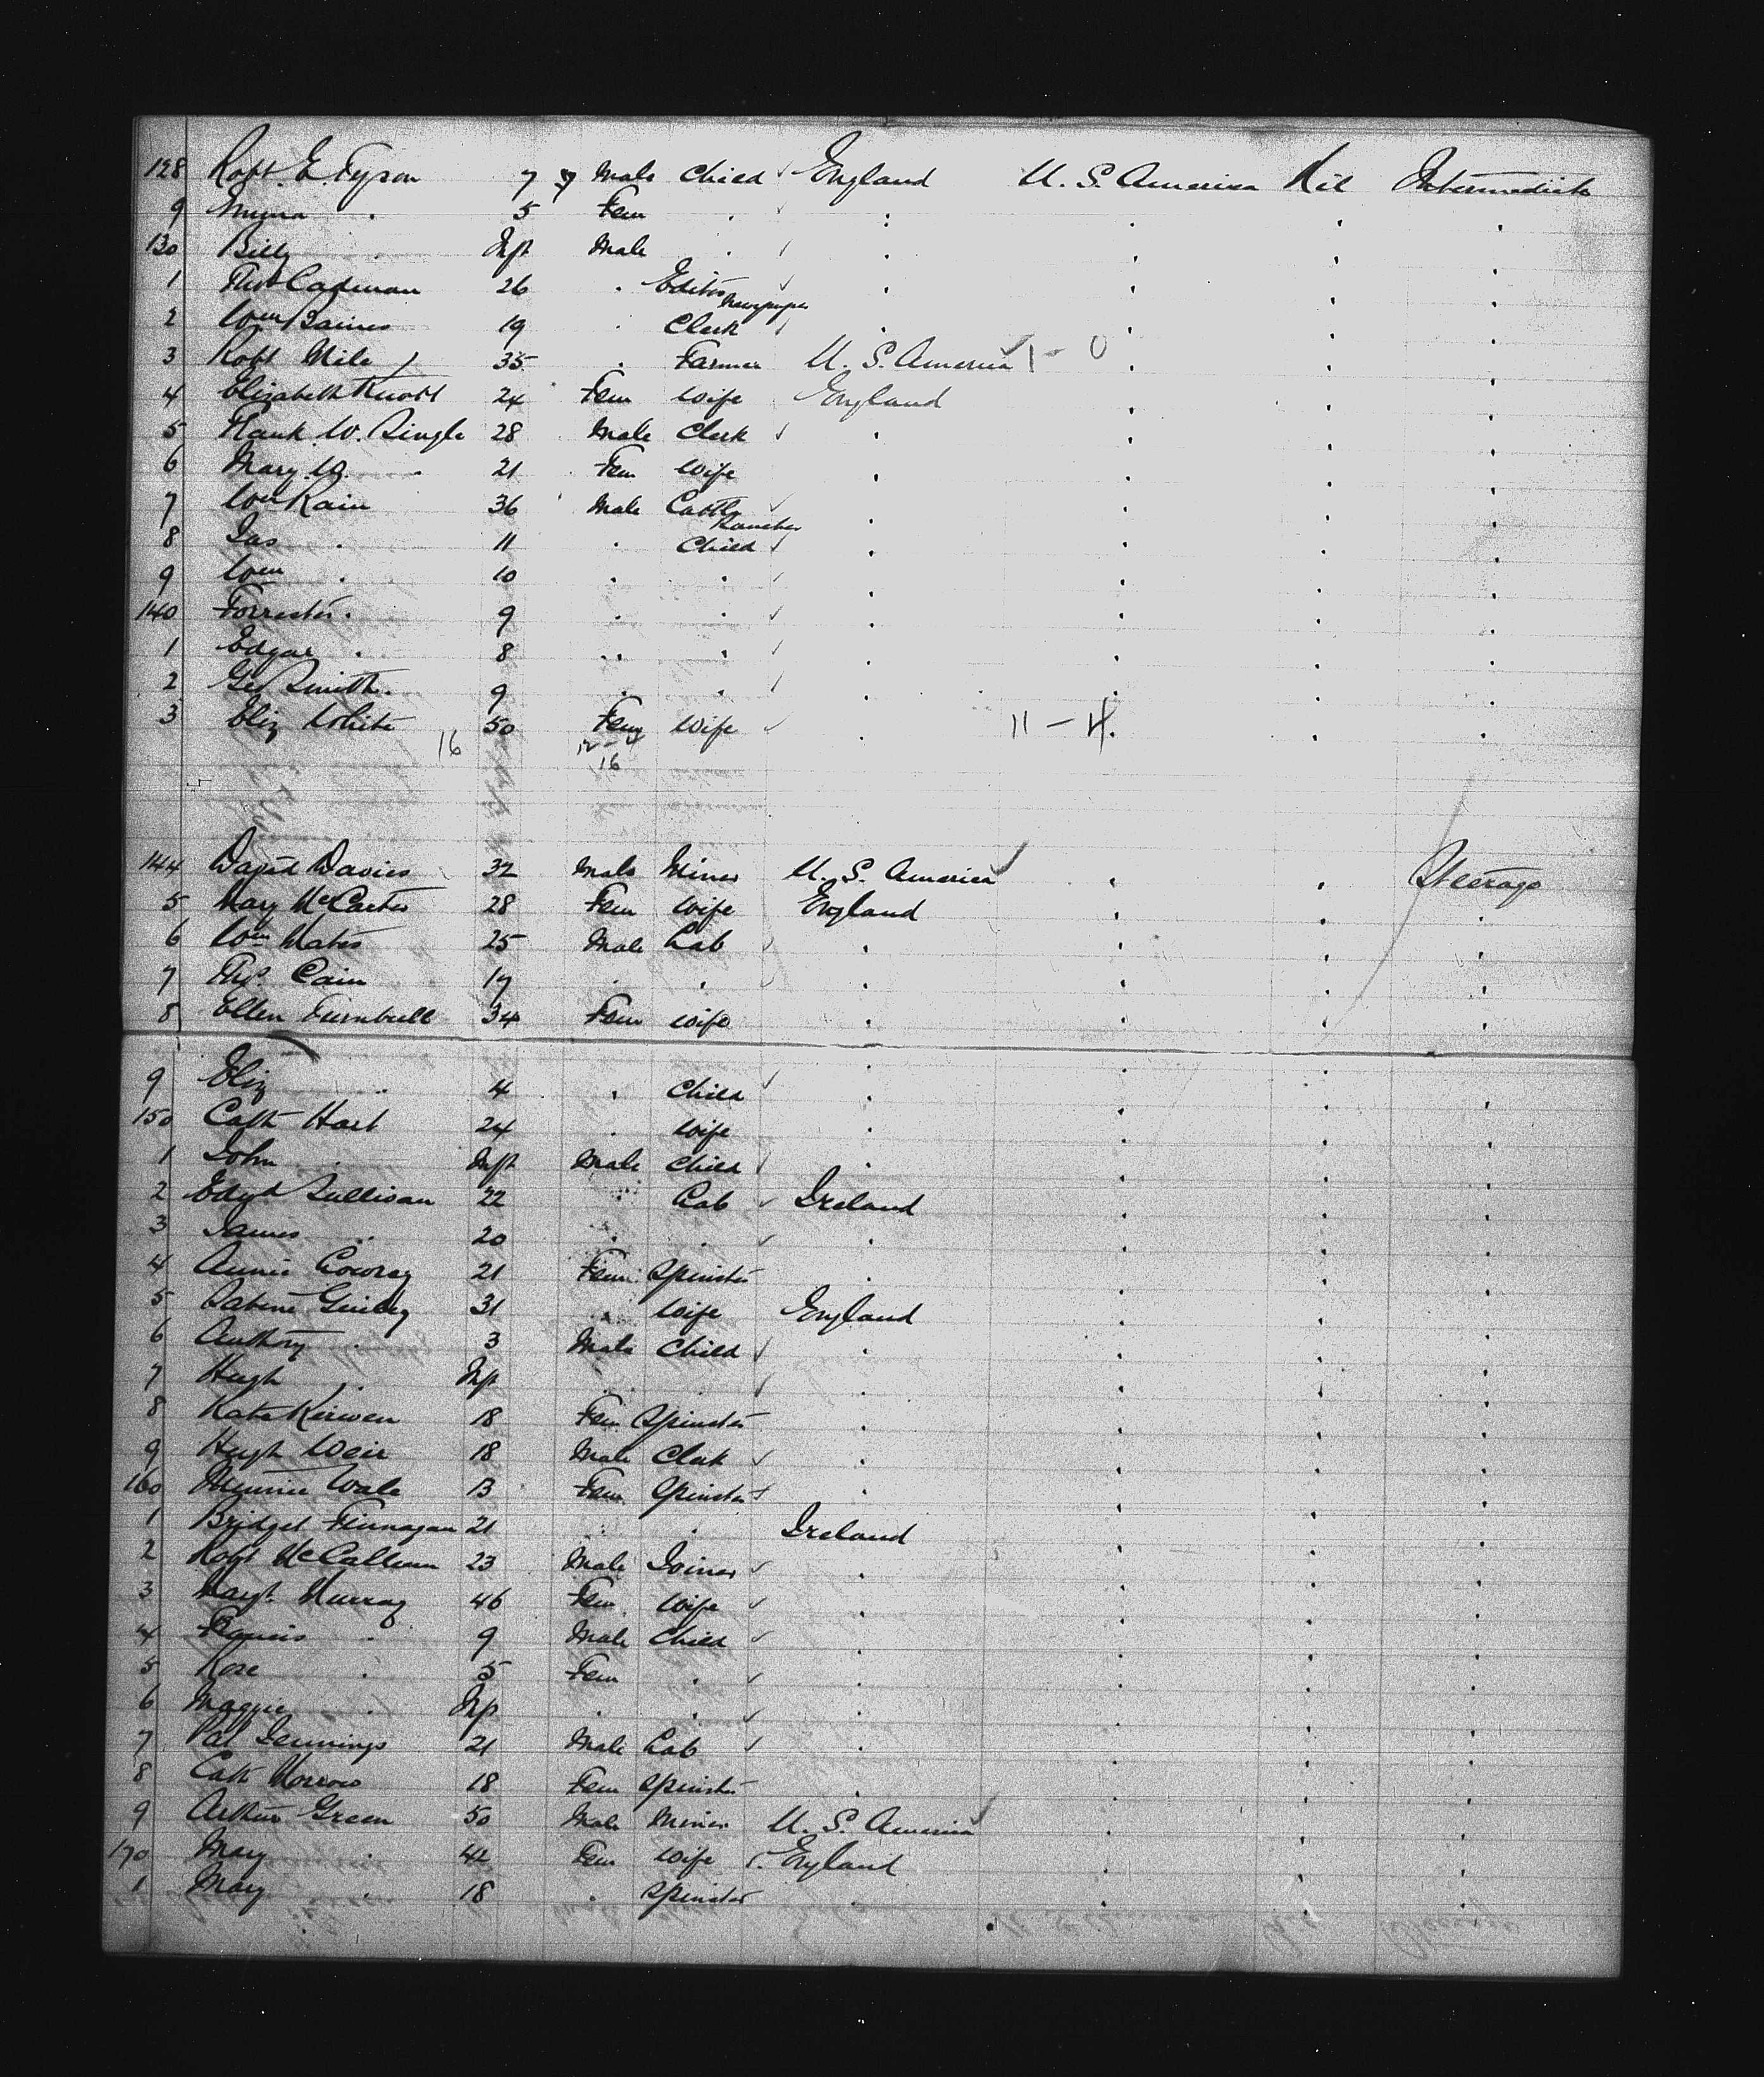 128 Robt. E. Tyson 7 7 Male Child England U. S. America Nil Intermediate
9 Myra . 5 Fem . . . . .
130 Billy . Inft Male . . . . .
1 Thos Cadman 26 . Editor Newspaper . . . .
2 Wm Baines 19 . Clerk . . . .
3 Robt Mile 35 . Farmer U. S. America 1 - 0 . . .
4 Elizabeth Knott 24 Fem Wife England . . .
5 Frank W. Single 28 Male Clerk . . . .
6 Mary W. . 21 Fem Wife . . . .
7 Wm Kain 36 Male Cattle Rancher . . . .
8 Jas . 11 . Child . . . .
9 Wm . 10 . . . . . .
140 Forrester . 9 . . . . . .
1 Edgar . 8 . . . . . .
2 Geo Smith 9 . . . . . .
3 Eliz White 50 Fem Wife . 11 - 4 . . .
16 12 - 4
16
144 David Davies 32 Male Miner U. S. America . . Steerage
5 Mary McCarter 28 Fem Wife England . . .
6 Wm 25 Male Lab . . . .
7 Thos. Cain 17 . . . . . .
8 Ellen Turnbull 34 Fem Wife . . . .
9 Eliz . 4 . Child . . . .
150 Cath Hart 24 . Wife . . . .
1 John . Inft Male Child . . . .
2 Edwd Sullivan 22 . Lab Ireland . . .
3 James . 20 . . . . . .
4 Annie Cowray 21 Fem Spinster . . . .
5 Sabina 31 . Wife England . . .
6 Anthony . 3 Male Child . . . .
7 Hugh . Inft . . . . . .
8 Kate Kerwen 18 Fem Spinster . . . .
9 Hugh Weir 18 Male Clerk . . . .
160 Minnie Wale 13 Fem Spinster . . . .
1 Bridget Finnagan 21 . . Ireland . . .
2 Robt McCallum 23 Male Joiner . . . .
3 Margt Murray 46 Fem Wife . . . .
4 Francis . 9 Male Child . . . .
5 Rose . 5 Fem . . . . .
6 Maggie . Inft . . . . . .
7 Pat Jennings 21 Male Lab . . . .
8 Cath Morrow 18 Fem Spinster . . . .
9 Arthur Green 50 Male Miner U. S. America . . .
170 Mary . 42 Fem Wife England . . .
1 Mary . 18 . Spinster . . . .